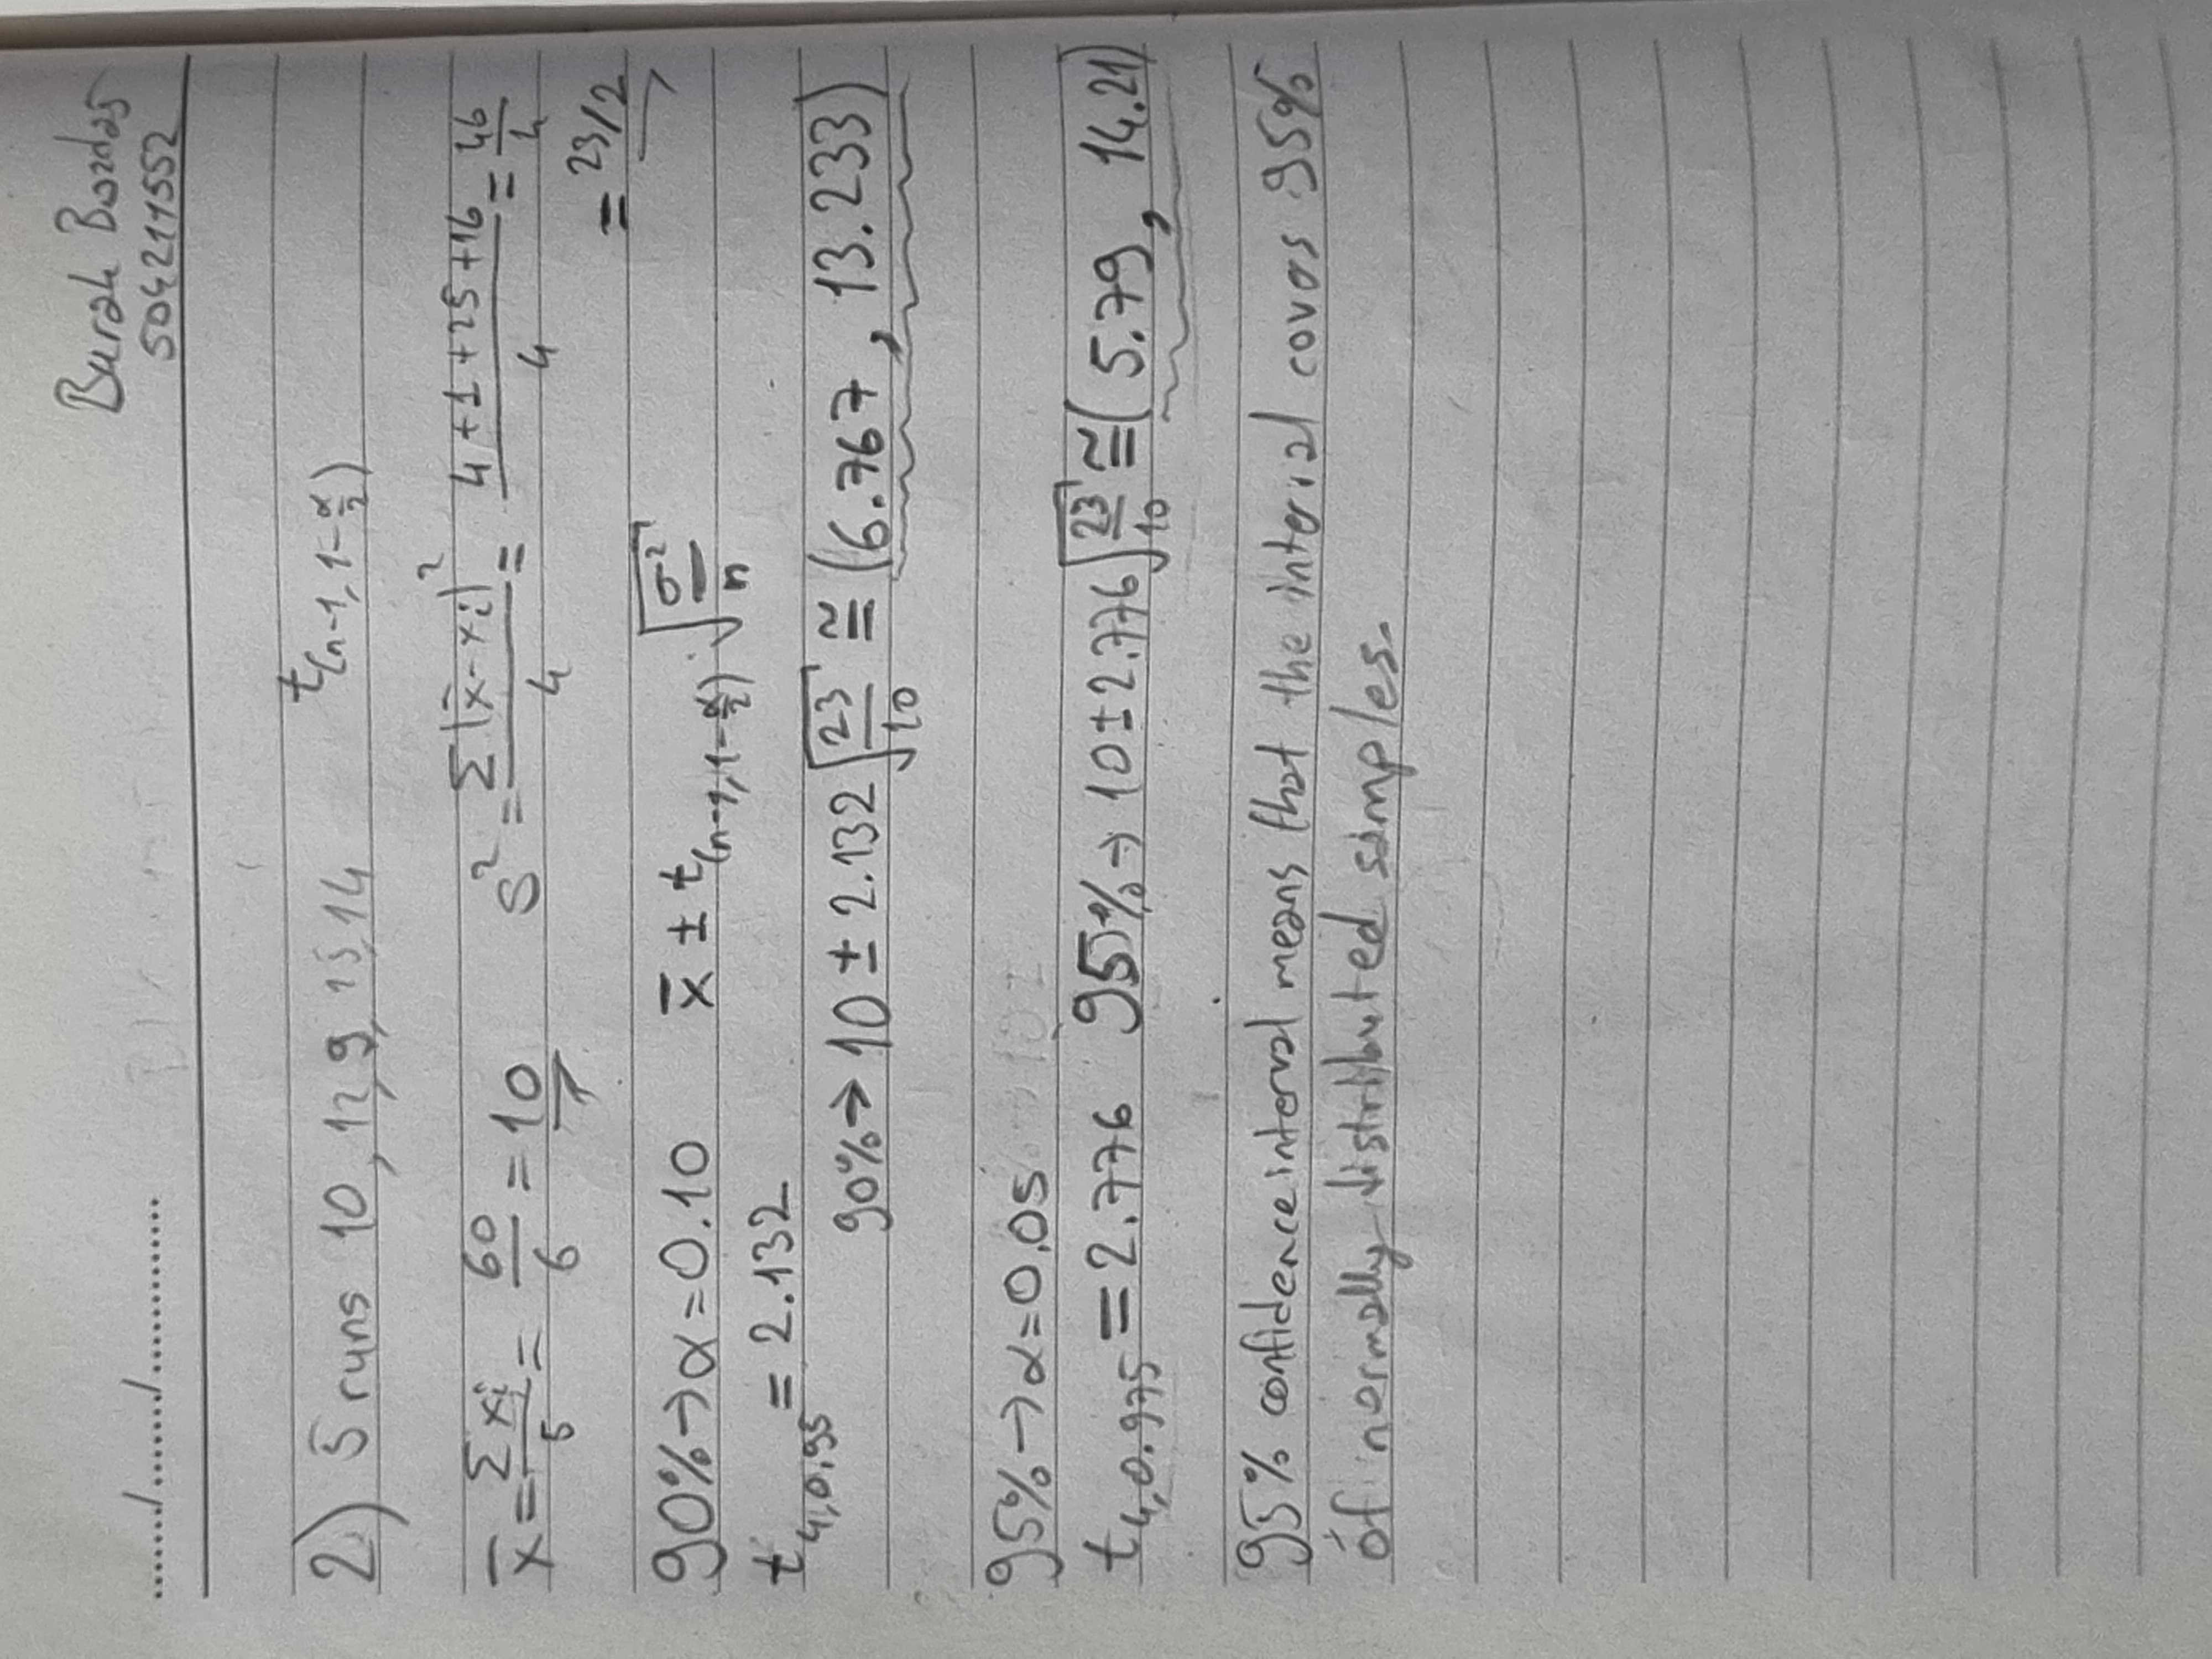 ....../......./.............
Burak Bozdağ
504211552
2) 5 runs 10, 12, 9, 15, 14 t(n-1, 1-α/2)
x̄ = Σxi/5 = 60/6 = 10 S² = Σ|x̄-xi|²/4 = 4+1+25+16/4 = 46/4
= 23/2
90% → α = 0.10 x̄ ± t(n-1, 1-α/2) · √σ²/n
t4,0.95 = 2.132
90% → 10 ± 2.132 √23/10 ≅ (6.767, 13.233)
95% → α = 0.05
t4,0.975 = 2.776 95% → 10 ± 2.776 √23/10 ≅ (5.79, 14.21)
95% confidence interval means that the interval covers 95%
of normally distributed samples.